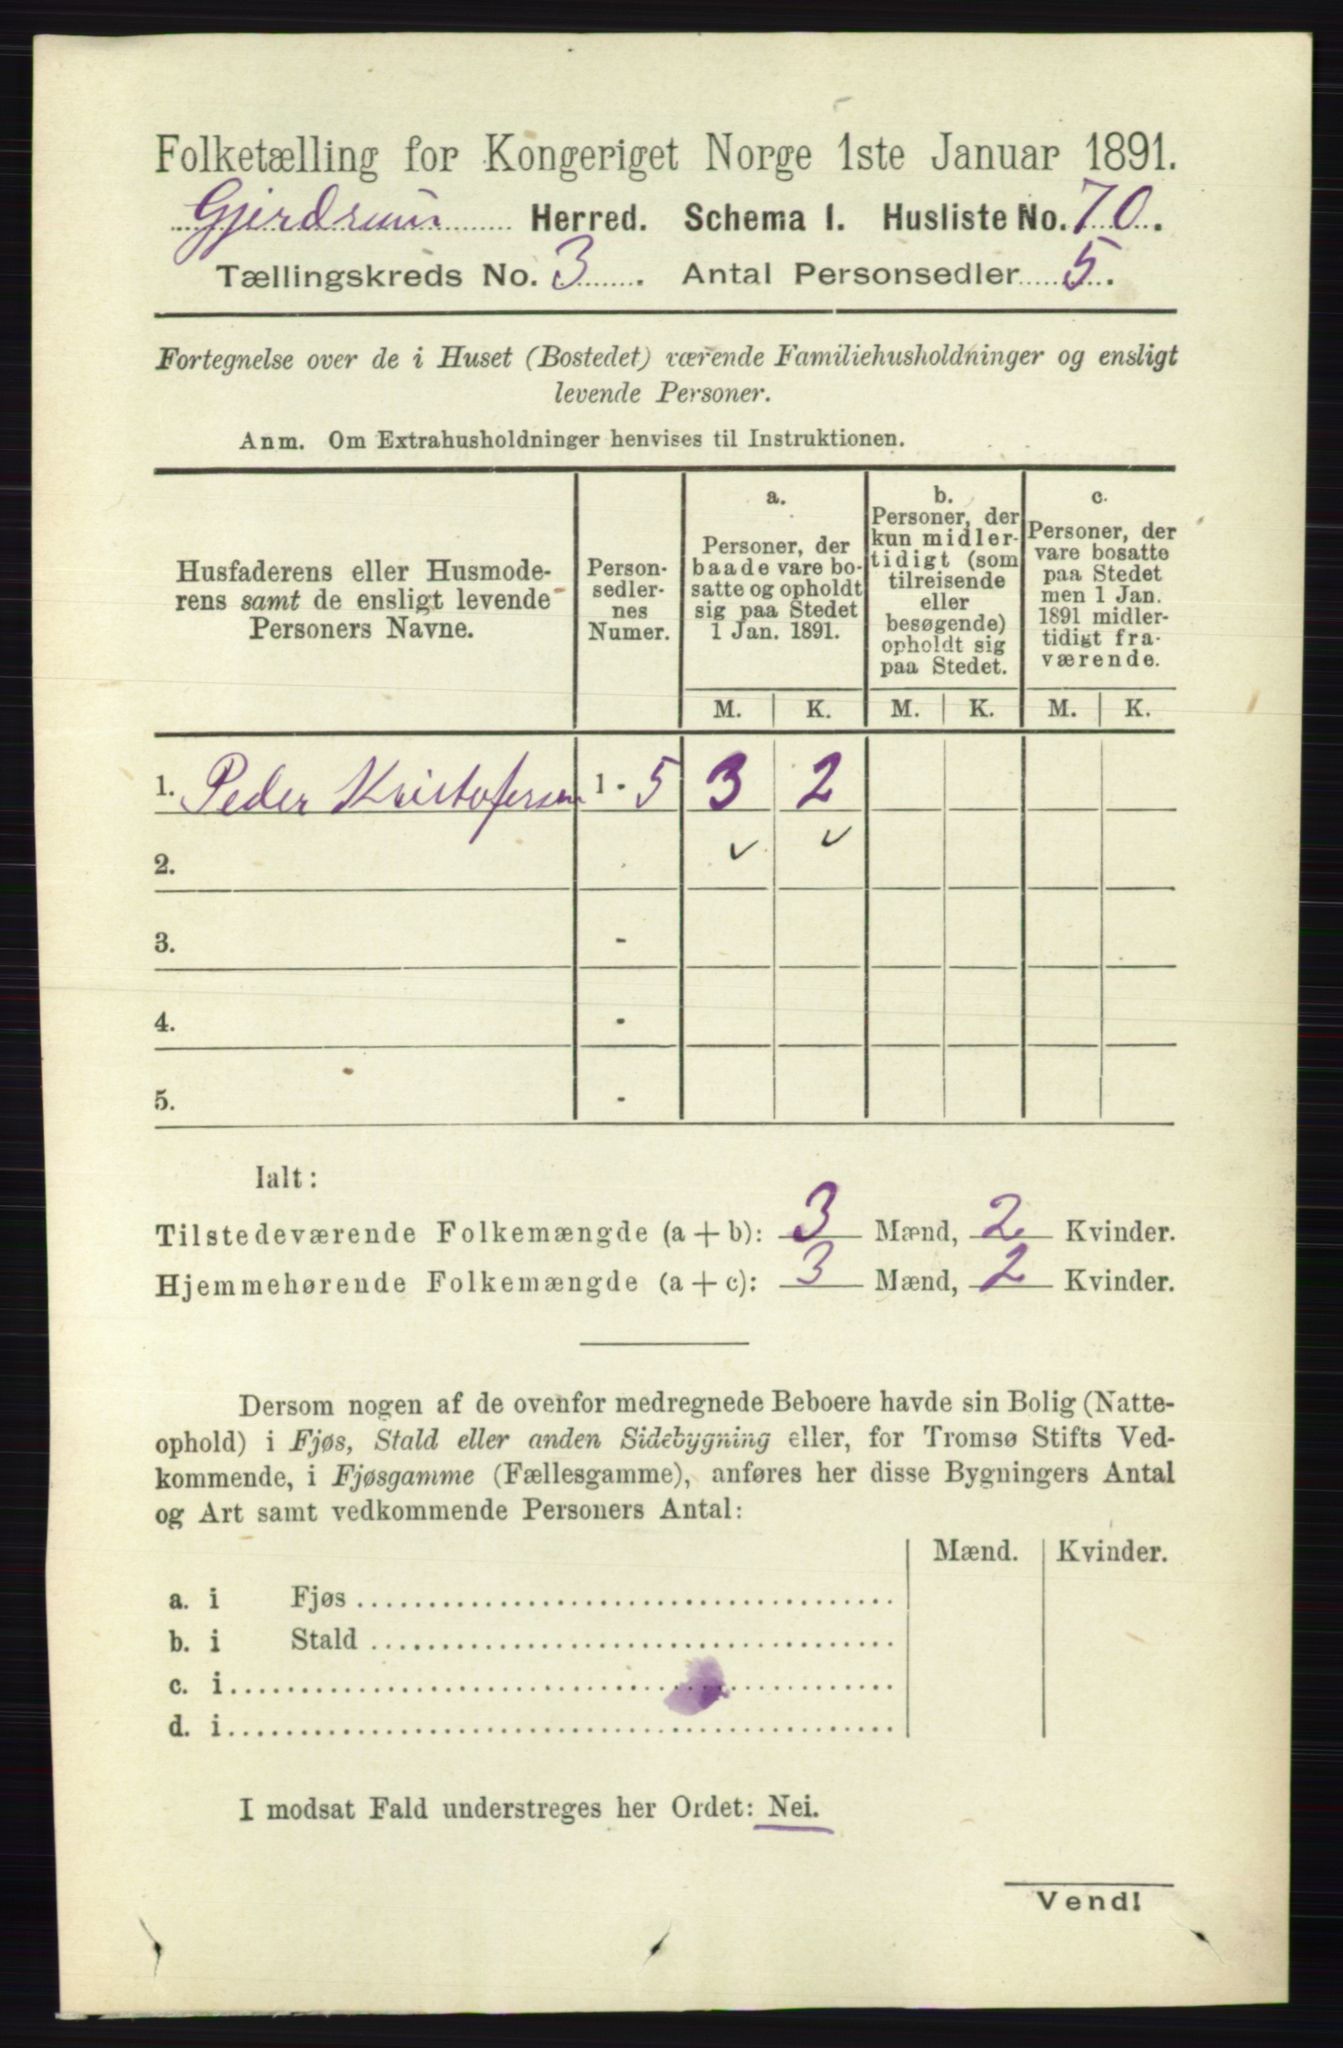 Folketælling for Kongeriget Norge 1ste Januar 1891.
Gjerdrum Herred. Schema I. Husliste No. 70.
Tællingskreds No. 3. Antal Personsedler 5.
Fortegnelse over de i Huset (Bostedet) værende Familiehusholdninger og ensligt
levende Personer.
Anm. Om Extrahusholdninger henvises til Instruktionen.
Husfaderens eller Husmode-
rens samt de ensligt levende
Personers Navne.
Person-
sedler-
nes
Numer.
a.
Personer, der
baade vare bo-
satte og opholdt
sig paa Stedet
1 Jan. 1891.
b.
Personer, der
kun midler-
tidigt (som
tilreisende
eller
besøgende)
opholdt sig
paa Stedet.
c.
Personer, der
vare bosatte
paa Stedet
men 1 Jan.
1891 midler-
tidigt fra-
værende.
M. K. M. K. M. K.
1. Peder Kristofersen 1 - 5 3 2
2.
3. -
4. -
5. -
Ialt:
Tilstedeværende Folkemængde (a + b): 3 Mænd, 2 Kvinder.
Hjemmehørende Folkemængde (a + c): 3 Mænd, 2 Kvinder.
Dersom nogen af de ovenfor medregnede Beboere havde sin Bolig (Natte-
ophold) i Fjøs, Stald eller anden Sidebygning eller, for Tromsø Stifts Ved-
kommende, i Fjøsgamme (Fællesgamme), anføres her disse Bygningers Antal
og Art samt vedkommende Personers Antal:
Mænd. Kvinder.
a. i Fjøs
b. i Stald
c. i
d. i
I modsat Fald understreges her Ordet: Nei.
Vend!